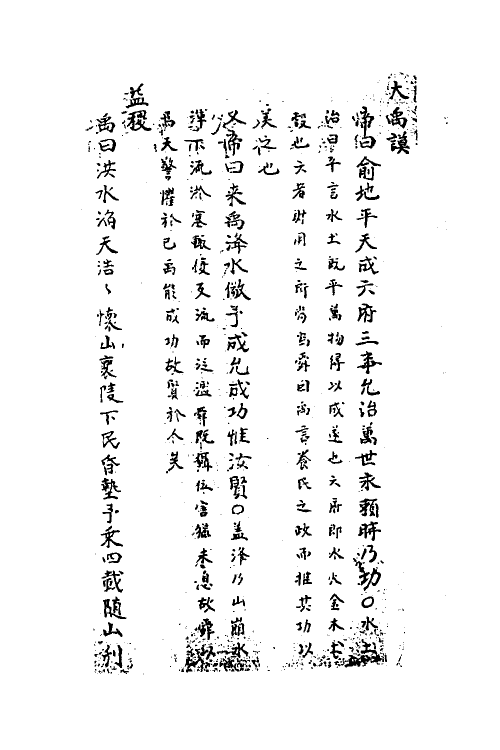 大禹謨
帝曰俞地平天成六府三事允治萬世永賴時乃功○水土
治曰平言水土既平萬物得以成遂也六府即水火金木土
穀也六者財用之所當爲舜因禹言養民之政而推其功以
美之也
又帝曰来禹洚水儆予成允成功惟汝賢○盖洚乃山崩水
渾下流淤塞輙復反流而泛濫舜既攝位害猶未息故舜以
爲天警懼於己禹能成功故賢於人矣
益稷
禹曰洪水滔天浩〻懷山襄陵下民昏墊予乘四載随山刋